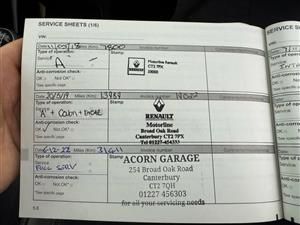 SERVICE SHEETS (1/6)
VIN:
Date Miles (Km) 7800 Invoice number
Type of operation: Stamp
Service
"A"
RENAULT
Motorline Renault
CT2 7PX
Anti-corrosion check:
OK Not OK*
*See specific page
Date Miles (Km) Invoice number
Type of operation: Stamp
"A" + Cabin +
RENAULT
Motorline
Broad Oak Road
Canterbury CT2 7PX
Tel 01227-454333
Anti-corrosion check:
OK Not OK*
*See specific page
Date 6-12-22 Miles (Km) Invoice number
Type of operation: Stamp
Service
FULL SERV
ACORN GARAGE
254 Broad Oak Road
Canterbury
CT2 7QH
01227 456303
for all your servicing needs
Anti-corrosion check:
OK Not OK*
*See specific page